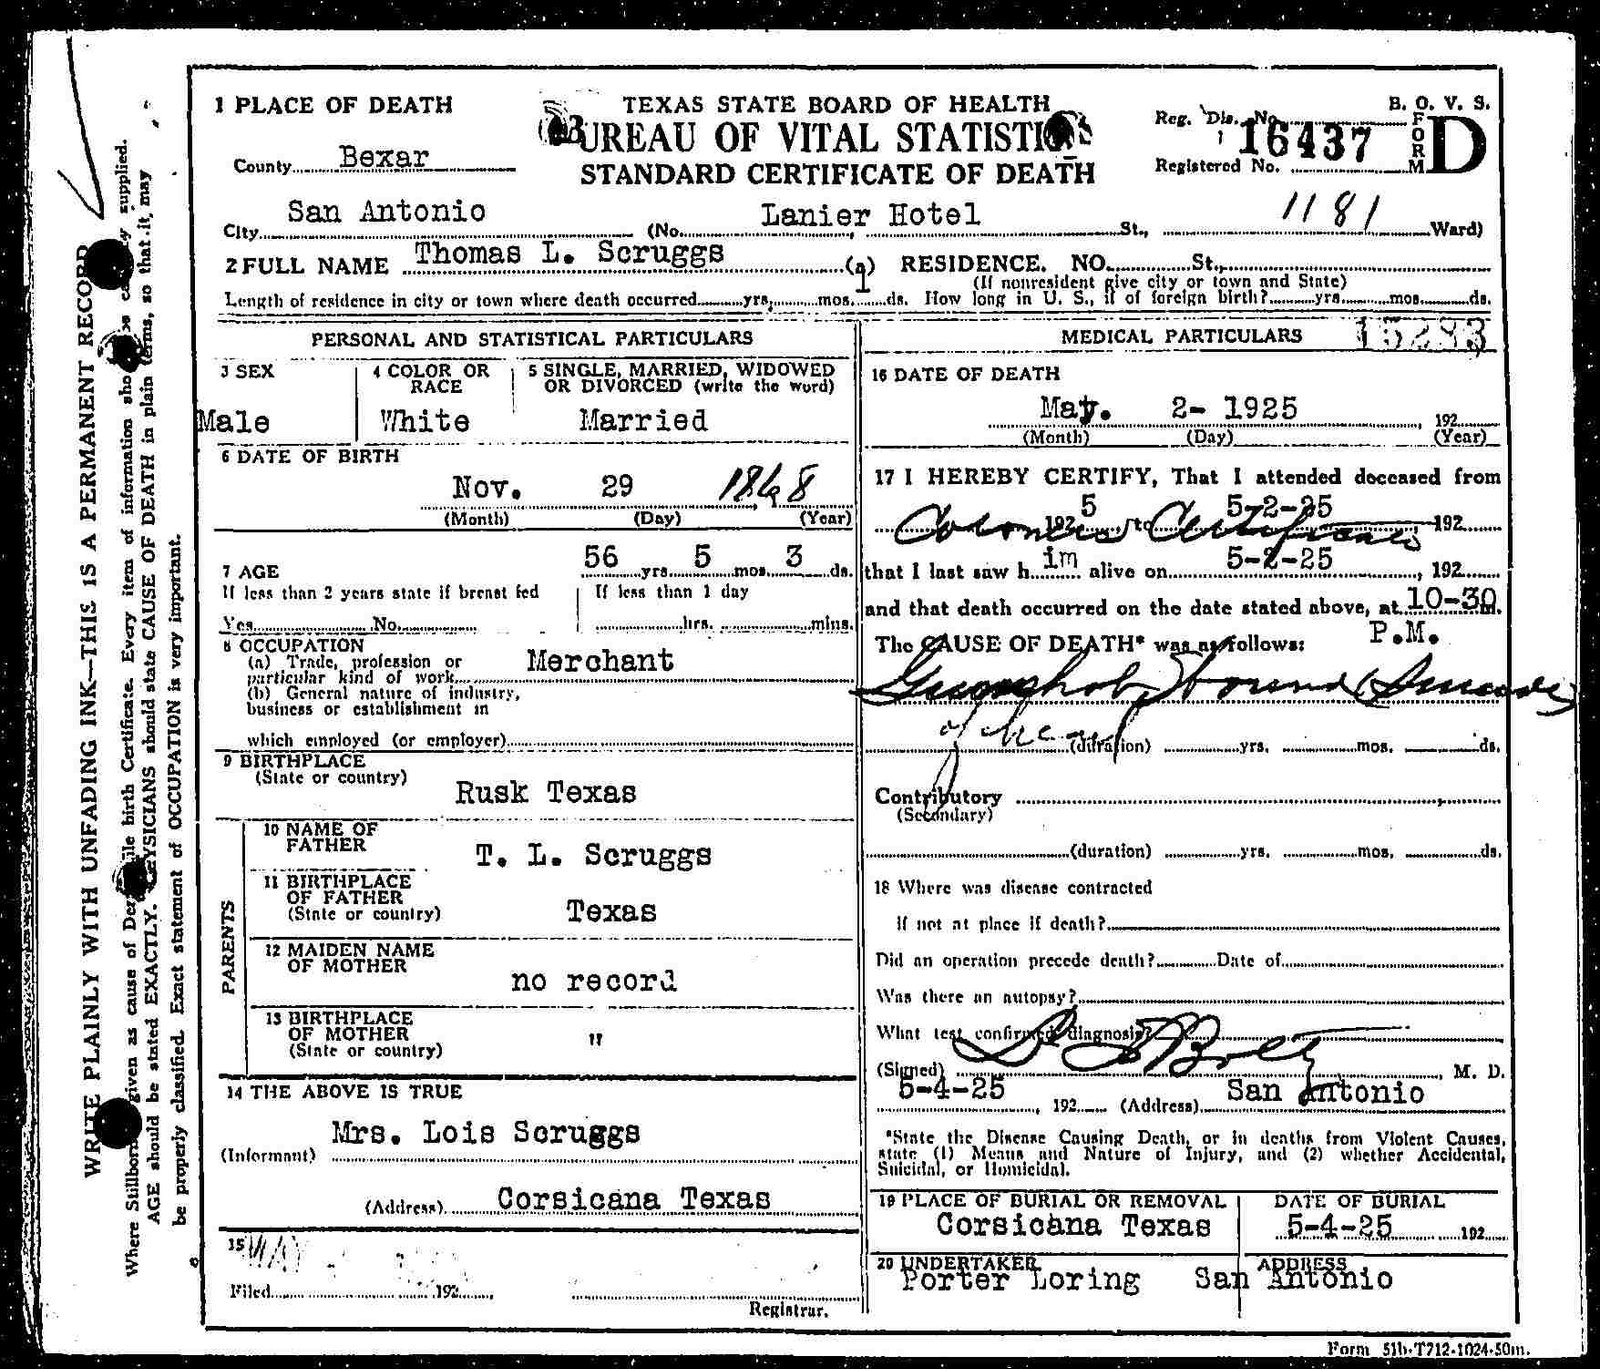 1 PLACE OF DEATH
TEXAS STATE BOARD OF HEALTH
BUREAU OF VITAL STATISTICS
STANDARD CERTIFICATE OF DEATH
B. O. V. S.
FORM D
Reg. Dis. No.
16437
Registered No.
County Bexar
City San Antonio (No. Lanier Hotel St., 1181 Ward)
2 FULL NAME Thomas L. Scruggs (a) RESIDENCE. NO. St.,
(If nonresident give city or town and State)
Length of residence in city or town where death occurred yrs. mos. ds. How long in U. S., if of foreign birth? yrs. mos. ds.
PERSONAL AND STATISTICAL PARTICULARS
3 SEX
Male
4 COLOR OR RACE
White
5 SINGLE, MARRIED, WIDOWED
OR DIVORCED (write the word)
Married
6 DATE OF BIRTH
Nov. 29 1868
(Month) (Day) (Year)
7 AGE 56 yrs. 5 mos. 3 ds.
If less than 2 years state if breast fed
Yes No
If less than 1 day
hrs. mins.
8 OCCUPATION
(a) Trade, profession or
particular kind of work Merchant
(b) General nature of industry,
business or establishment in
which employed (or employer)
9 BIRTHPLACE
(State or country)
Rusk Texas
PARENTS
10 NAME OF
FATHER
T. L. Scruggs
11 BIRTHPLACE
OF FATHER
(State or country)
Texas
12 MAIDEN NAME
OF MOTHER
no record
13 BIRTHPLACE
OF MOTHER
(State or country)
"
14 THE ABOVE IS TRUE
(Informant) Mrs. Lois Scruggs
(Address) Corsicana Texas
15
Filed 192
Registrar.
MEDICAL PARTICULARS
15283
16 DATE OF DEATH
May. 2- 1925 192
(Month) (Day) (Year)
17 I HEREBY CERTIFY, That I attended deceased from
Coroners 192 5 to Certificate 5-2-25 192
that I last saw h im alive on 5-2-25, 192
and that death occurred on the date stated above, at 10-30 m.
P.M.
The CAUSE OF DEATH* was as follows:
Gunshot Wound (Suicide)
of head
(duration) yrs. mos. ds.
Contributory
(Secondary)
(duration) yrs. mos. ds.
18 Where was disease contracted
If not at place if death?
Did an operation precede death? Date of
Was there an autopsy?
What test confirmed diagnosis?
(Signed) M. D.
5-4-25, 192 (Address) San Antonio
*State the Disease Causing Death, or in deaths from Violent Causes,
state (1) Means and Nature of Injury, and (2) whether Accidental,
Suicidal, or Homicidal.
19 PLACE OF BURIAL OR REMOVAL
Corsicana Texas
DATE OF BURIAL
5-4-25 192
20 UNDERTAKER
Porter Loring
ADDRESS
San Antonio
Form 51b-T712-1024-50m.
WRITE PLAINLY WITH UNFADING INK—THIS IS A PERMANENT RECORD
Where Stillborn given as cause of Death, file birth Certificate. Every item of information should be supplied.
AGE should be stated EXACTLY. PHYSICIANS should state CAUSE OF DEATH in plain terms, so that it may
be properly classified. Exact statement of OCCUPATION is very important.